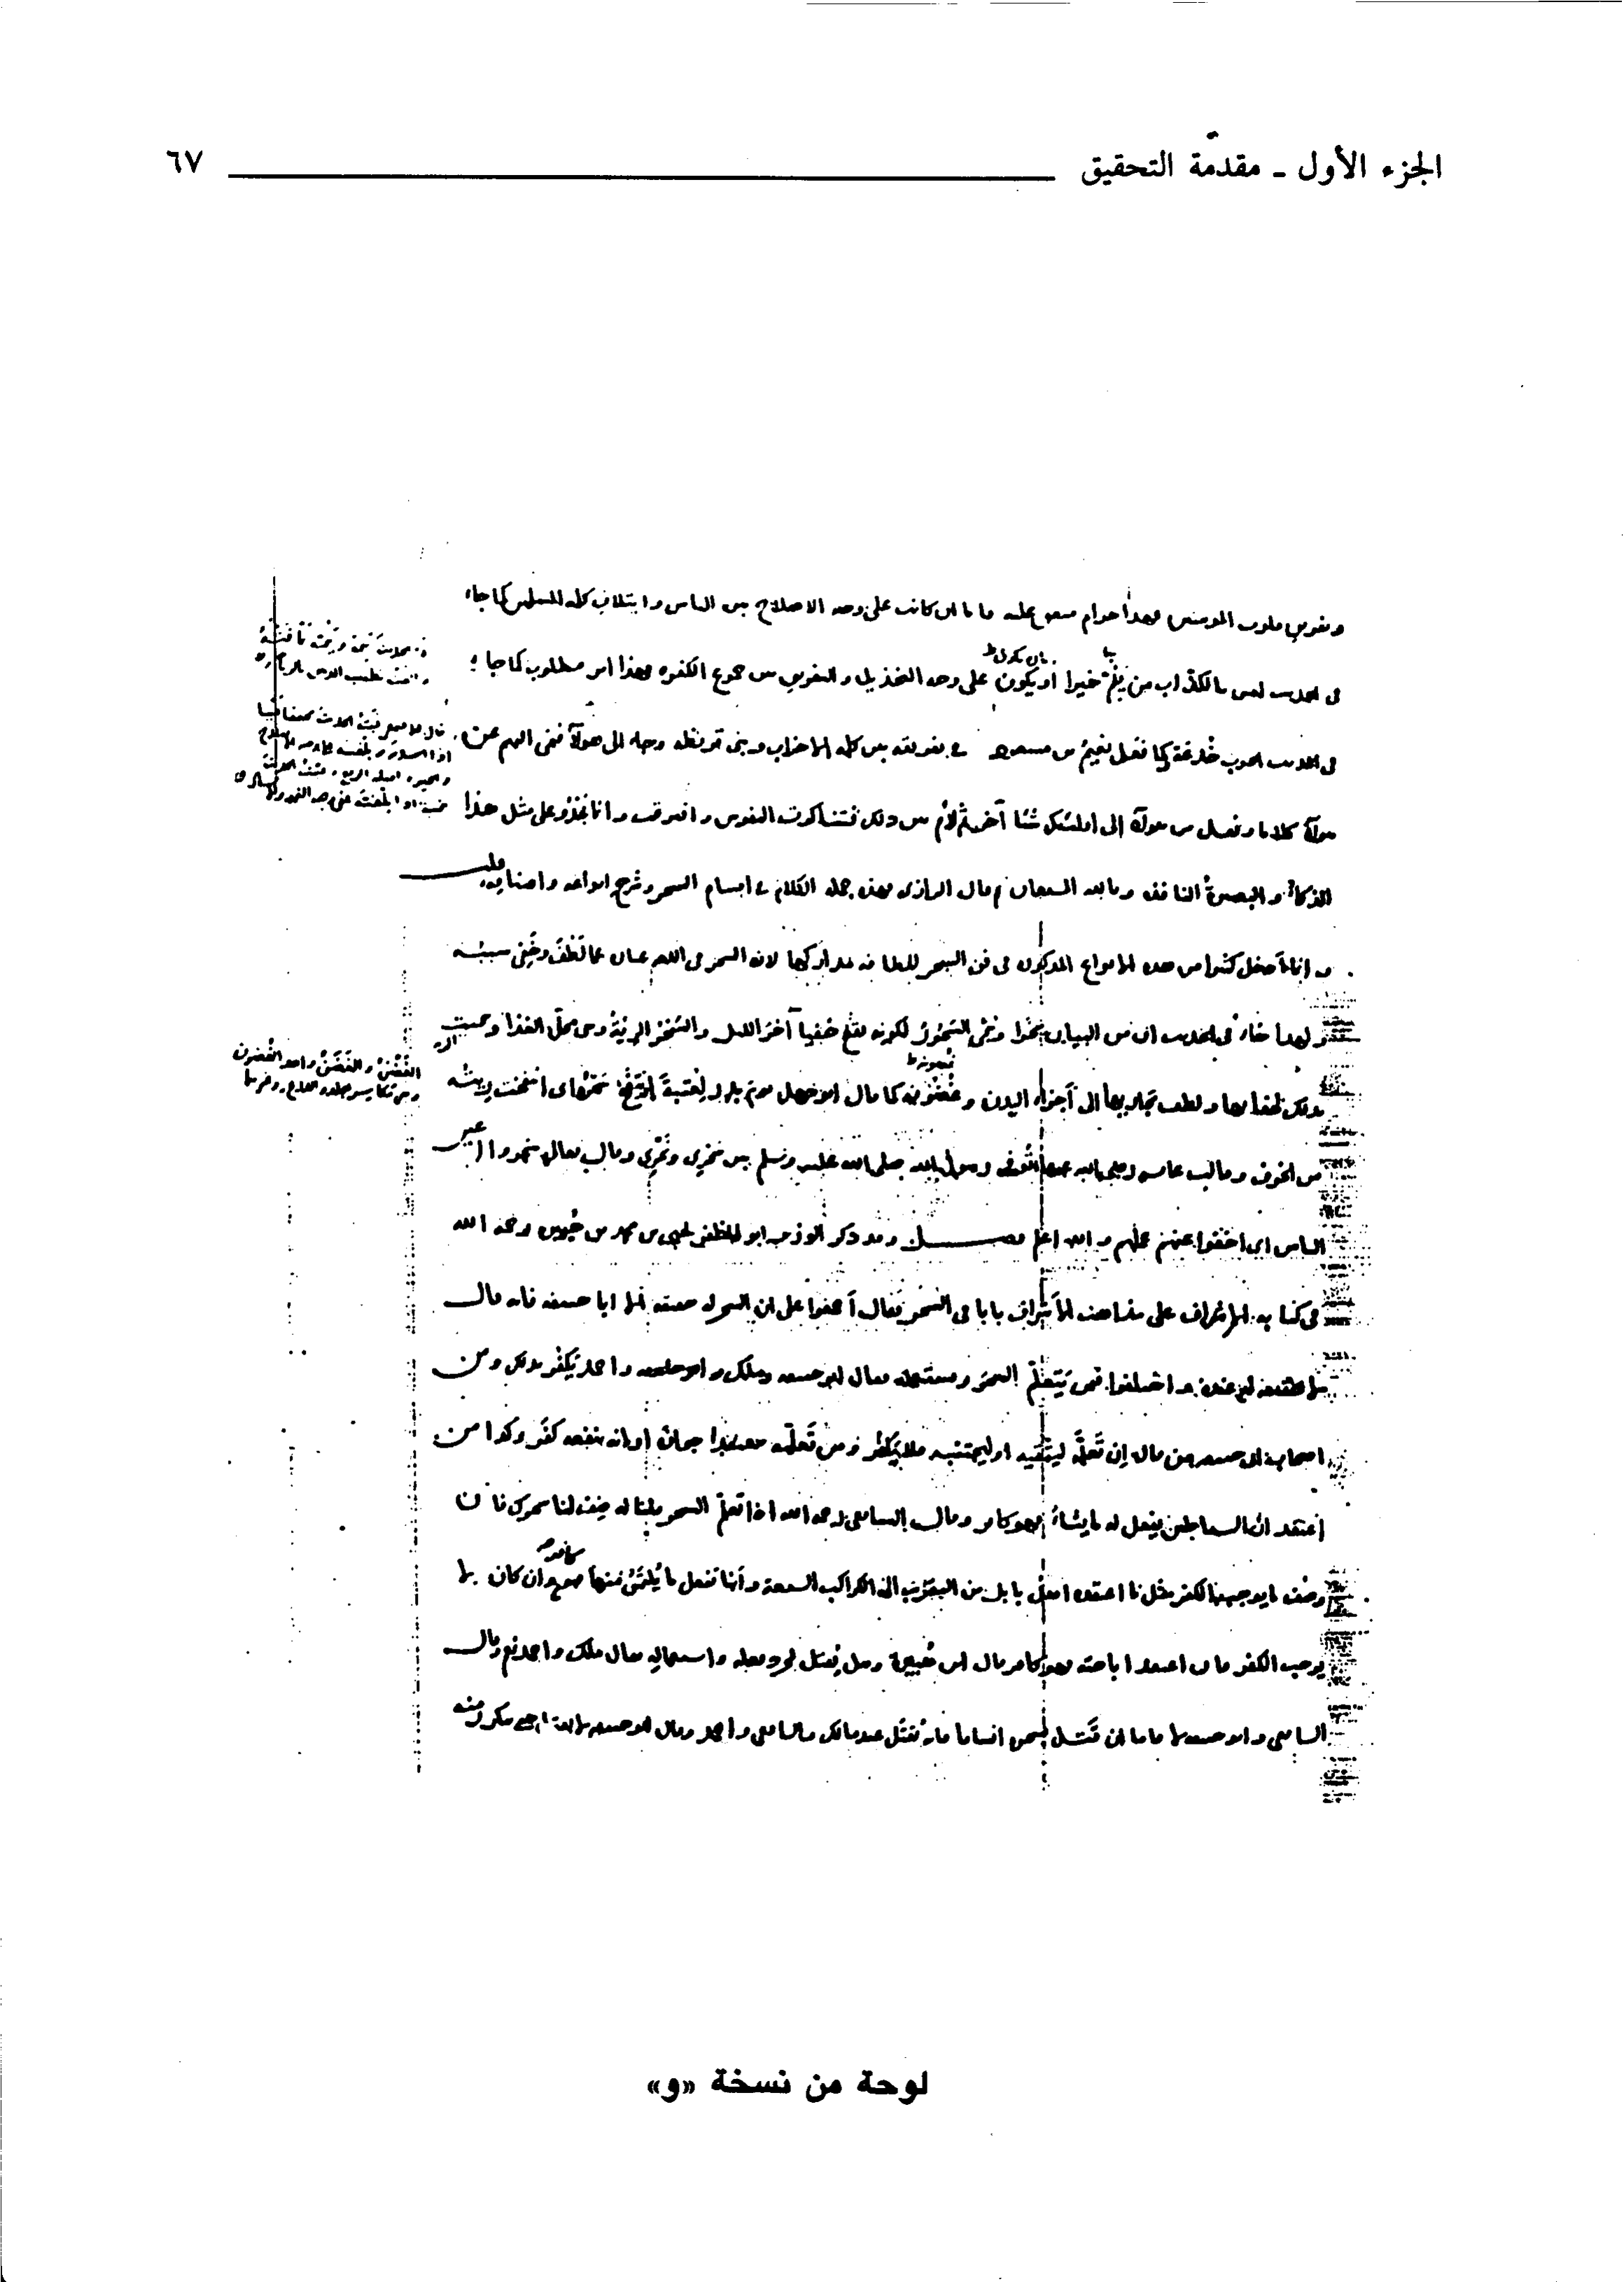 الجزء الأول ـ مقدمّة التحقيق
٦٧
وتفريق قلوب المومنين فهدا حرام متفق عليه فاما ان كانت على وجه الاصلاح بين الناس وايتلاف كلمه المسلمين كما جاء
في الحديث ليس بالكذاب من يَنُمّ خيرا او يكون على وجه التخذيل والتفريق بين جموع الكفره فهذا امر مطلوب كما جاء
في الحديث الحرب خُدعة وكما فعل نعيمُ بن مسعود في تفريقه بين كلمه الاحزاب وبنى قريظه وجاء الى هولآء فنمى اليهم عن
هولآء كلاما ونقل من هولآء الى اوليك شيئا آخر ثم لأم بين ذلك فتناكرت النفوس وافترقت وانما يحذو على مثل هذا
الذكاء والبصيرة النافذه وبالله المستعان ثم قال الرازي فهذه جمله الكلام في اقسام السحر وشرح انواعه واصنافه قلت
وانما أدخل كثيرا من هذه الانواع المذكوره في فن السحر للطافه مداركها لان السحر في اللغه عباره عما لَطُفَ وخَفِيَ سببُه
ولهذا جاء في الحديث ان من البيان لسحرا وسُمّي السَّحور لكونه يقع خفيا آخر الليل والسَّحر الرِّئة وهي محلّ الغذا وسميت
بذلك لخفائها ولطف مجاريها الى أجزاء البدن وغُضُونه كما قال ابو جهل يوم بدر لعُتبةَ انتفخ سَحْرُه اى انتفخت رِئته
من الخوف وقالت عايشه رضي الله عنها تُوفي رسول الله صلى الله عليه وسلم بين سَحْري ونَحْري وقال تعالى سحروا اعين
الناس اى اخفوا عنهم عملهم والله اعلم فصل وقد ذكر الوزير ابو المظفر يحيى بن محمد بن هُبيره رحمه الله
في كتابه الاشراف على مذاهب الأشراف بابا في السحر فقال أجمعوا على ان السحر له حقيقه الا ابا حنيفه فانه قال
لا حقيقه له عنده واختلفوا فيمن يَتعلّم السحر ويستعمله فقال ابو حنيفه ومالك واحمد يَكفُر بذلك ومن
اصحاب ابي حنيفه من قال إن تَعلّمَه ليتّقيه او ليجتنبه فلا يَكفُر ومن تَعلّمه معتقدا جوازه او انه ينفعه كفَر وكذا من
اعتقد ان الشياطين تفعل له ما يشاء فهو كافر وقال الشافعي رحمه الله اذا تعلّم السحر قلنا له صِف لنا سحرك فان
وصَف ما يوجب الكفر مثل ما اعتقده اهلُ بابل من التقرُّب الى الكواكب السبعه وأنها تفعل ما يُلتمَسُ منها فهو كافر وان كان لا
يوجب الكفر فان اعتقد اباحته فهو كافر قال ابن هُبيرة وهل يُقتل بمجرد فعله واستعماله فقال مالك واحمد نعم وقال
الشافعي وابو حنيفه لا فاما ان قَتل بسحره انسانا فانه يُقتَل عند مالك والشافعي واحمد وقال ابو حنيفه لا يقتل حتى يتكرر منه
لوحة من نسخة «و»